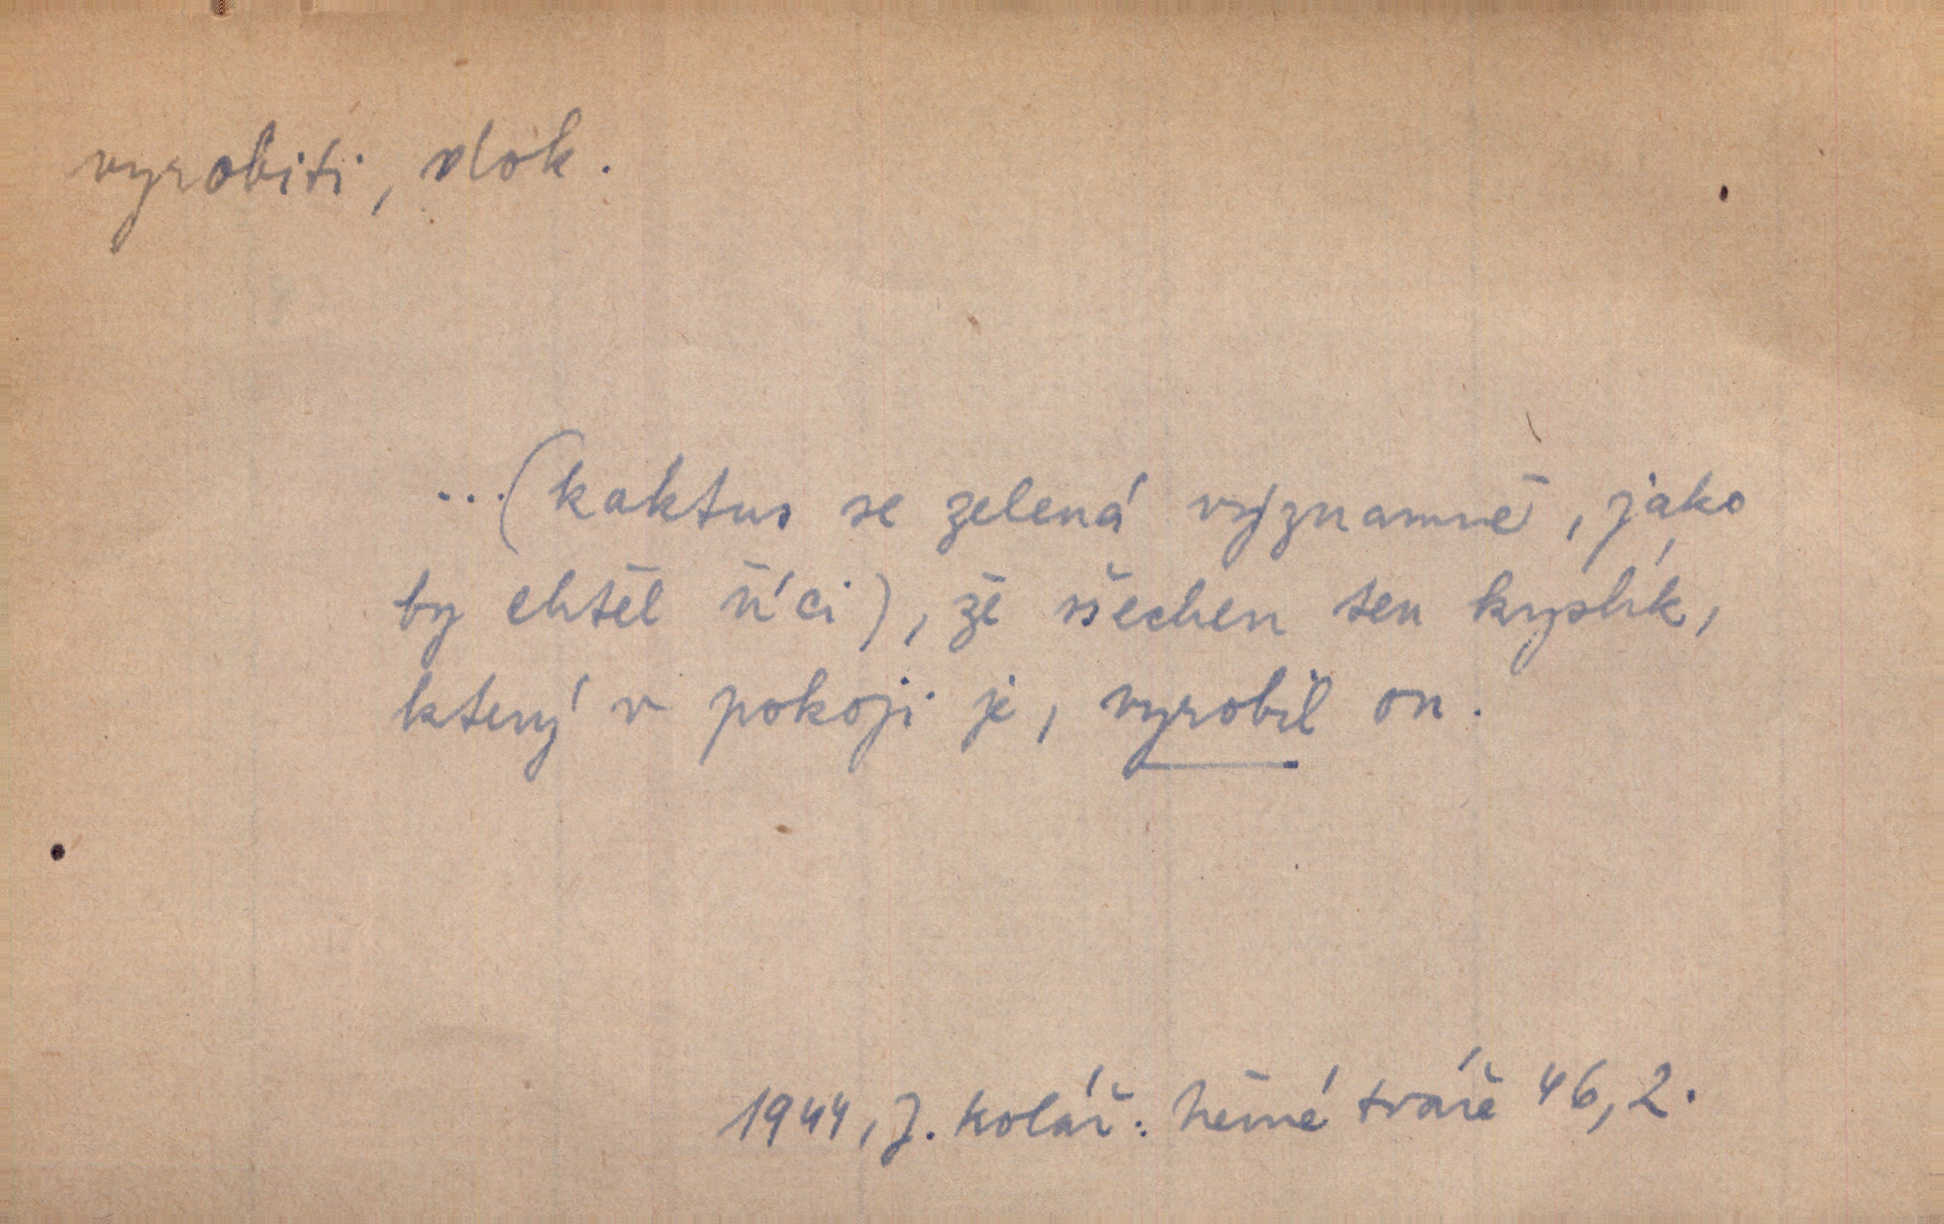 vyrobiti, dok.
...(kaktus se zelená významně, jako
by chtěl říci), že všechen ten kyslík,
který v pokoji je, vyrobil on.
1944, J. Kolář: Němé tváře 46, 2.